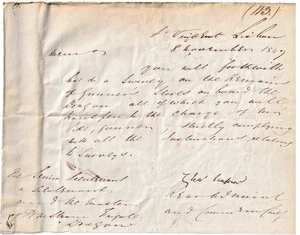 (113)
St Vincent Lisbon
8 November 18
you will forthwith
hold a Survey on the Remains
of Gunner's Stores on board the
Dragon all of which you will
transfer to the charge of
the Gunner, strictly complying
with all the Instructions relating
to Surveys.
The Senior Lieutenant
a Lieutenant
and the Master
of Steam Frigate
Dragon
Rear Admiral
and Commander